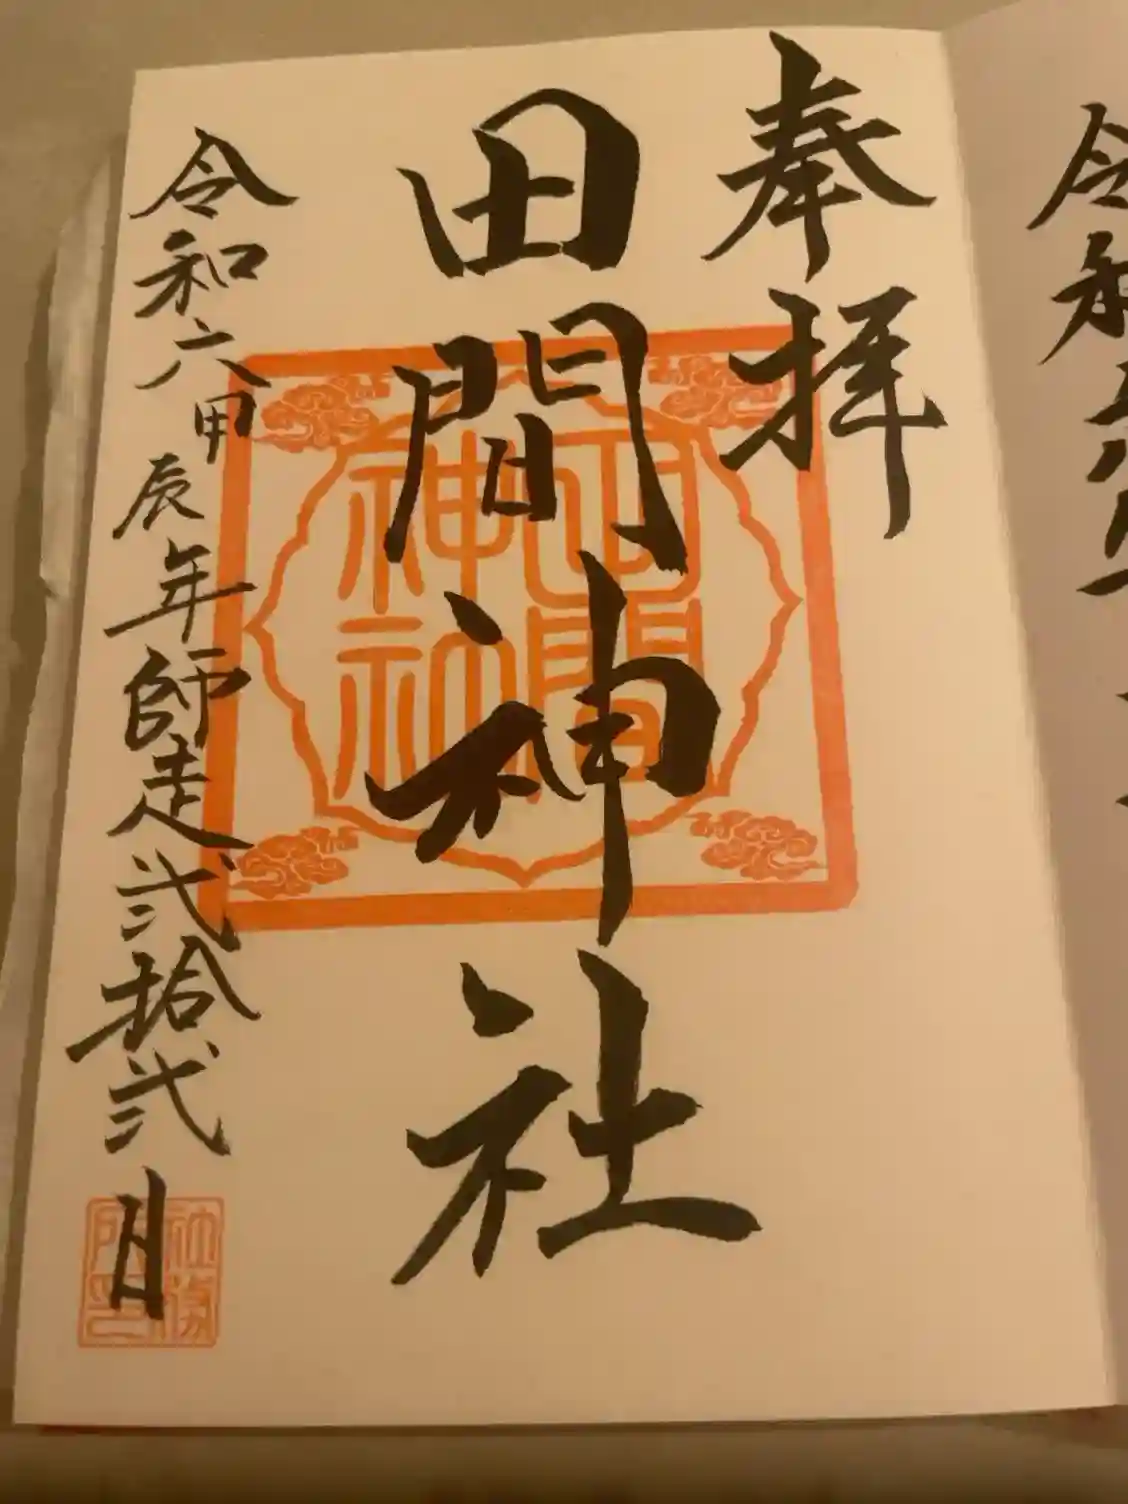 奉拝
田間神社
令和六甲辰年師走弐拾弐日
田間
神社
社務
所印
令和